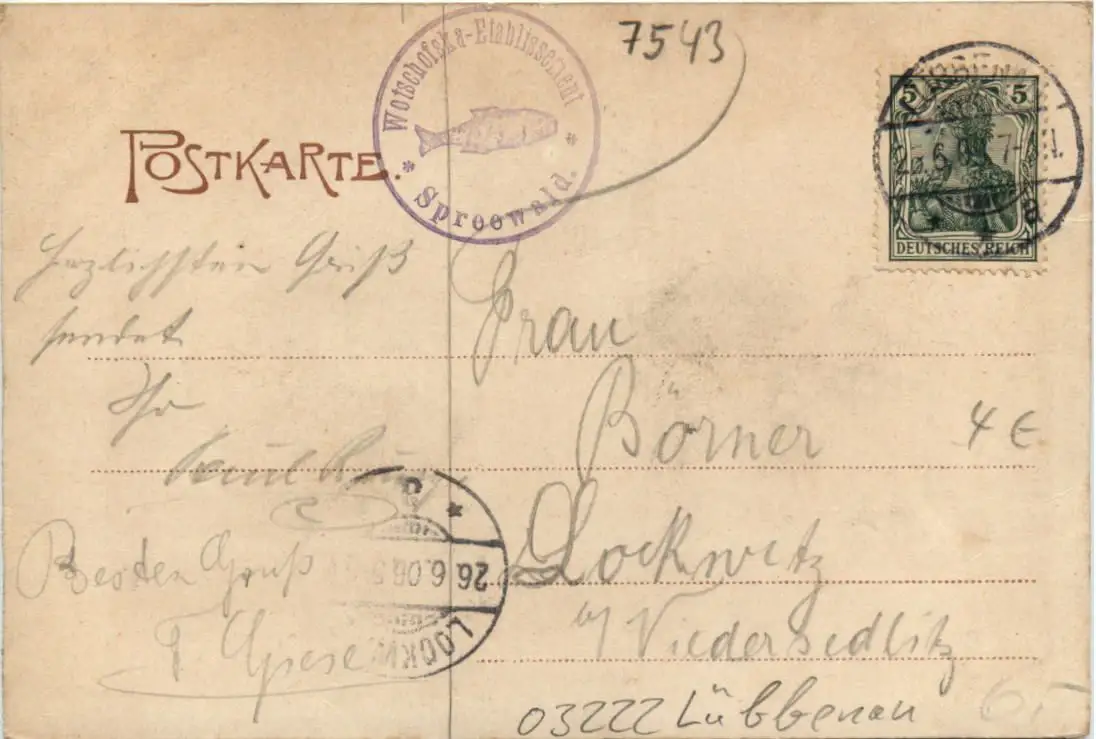 7543
Wotschofska-Etablissement
* Spreewald. *
POSTKARTE.
5 5
DEUTSCHES REICH
Herzlichsten Gruß
sendet
Ihr
Besten Gruß
T. Giese
Frau
Börner
Lockwitz
b/ Niedersedlitz
4 €
26.6.06
LOCKW
03222 Lübbenau
6,-